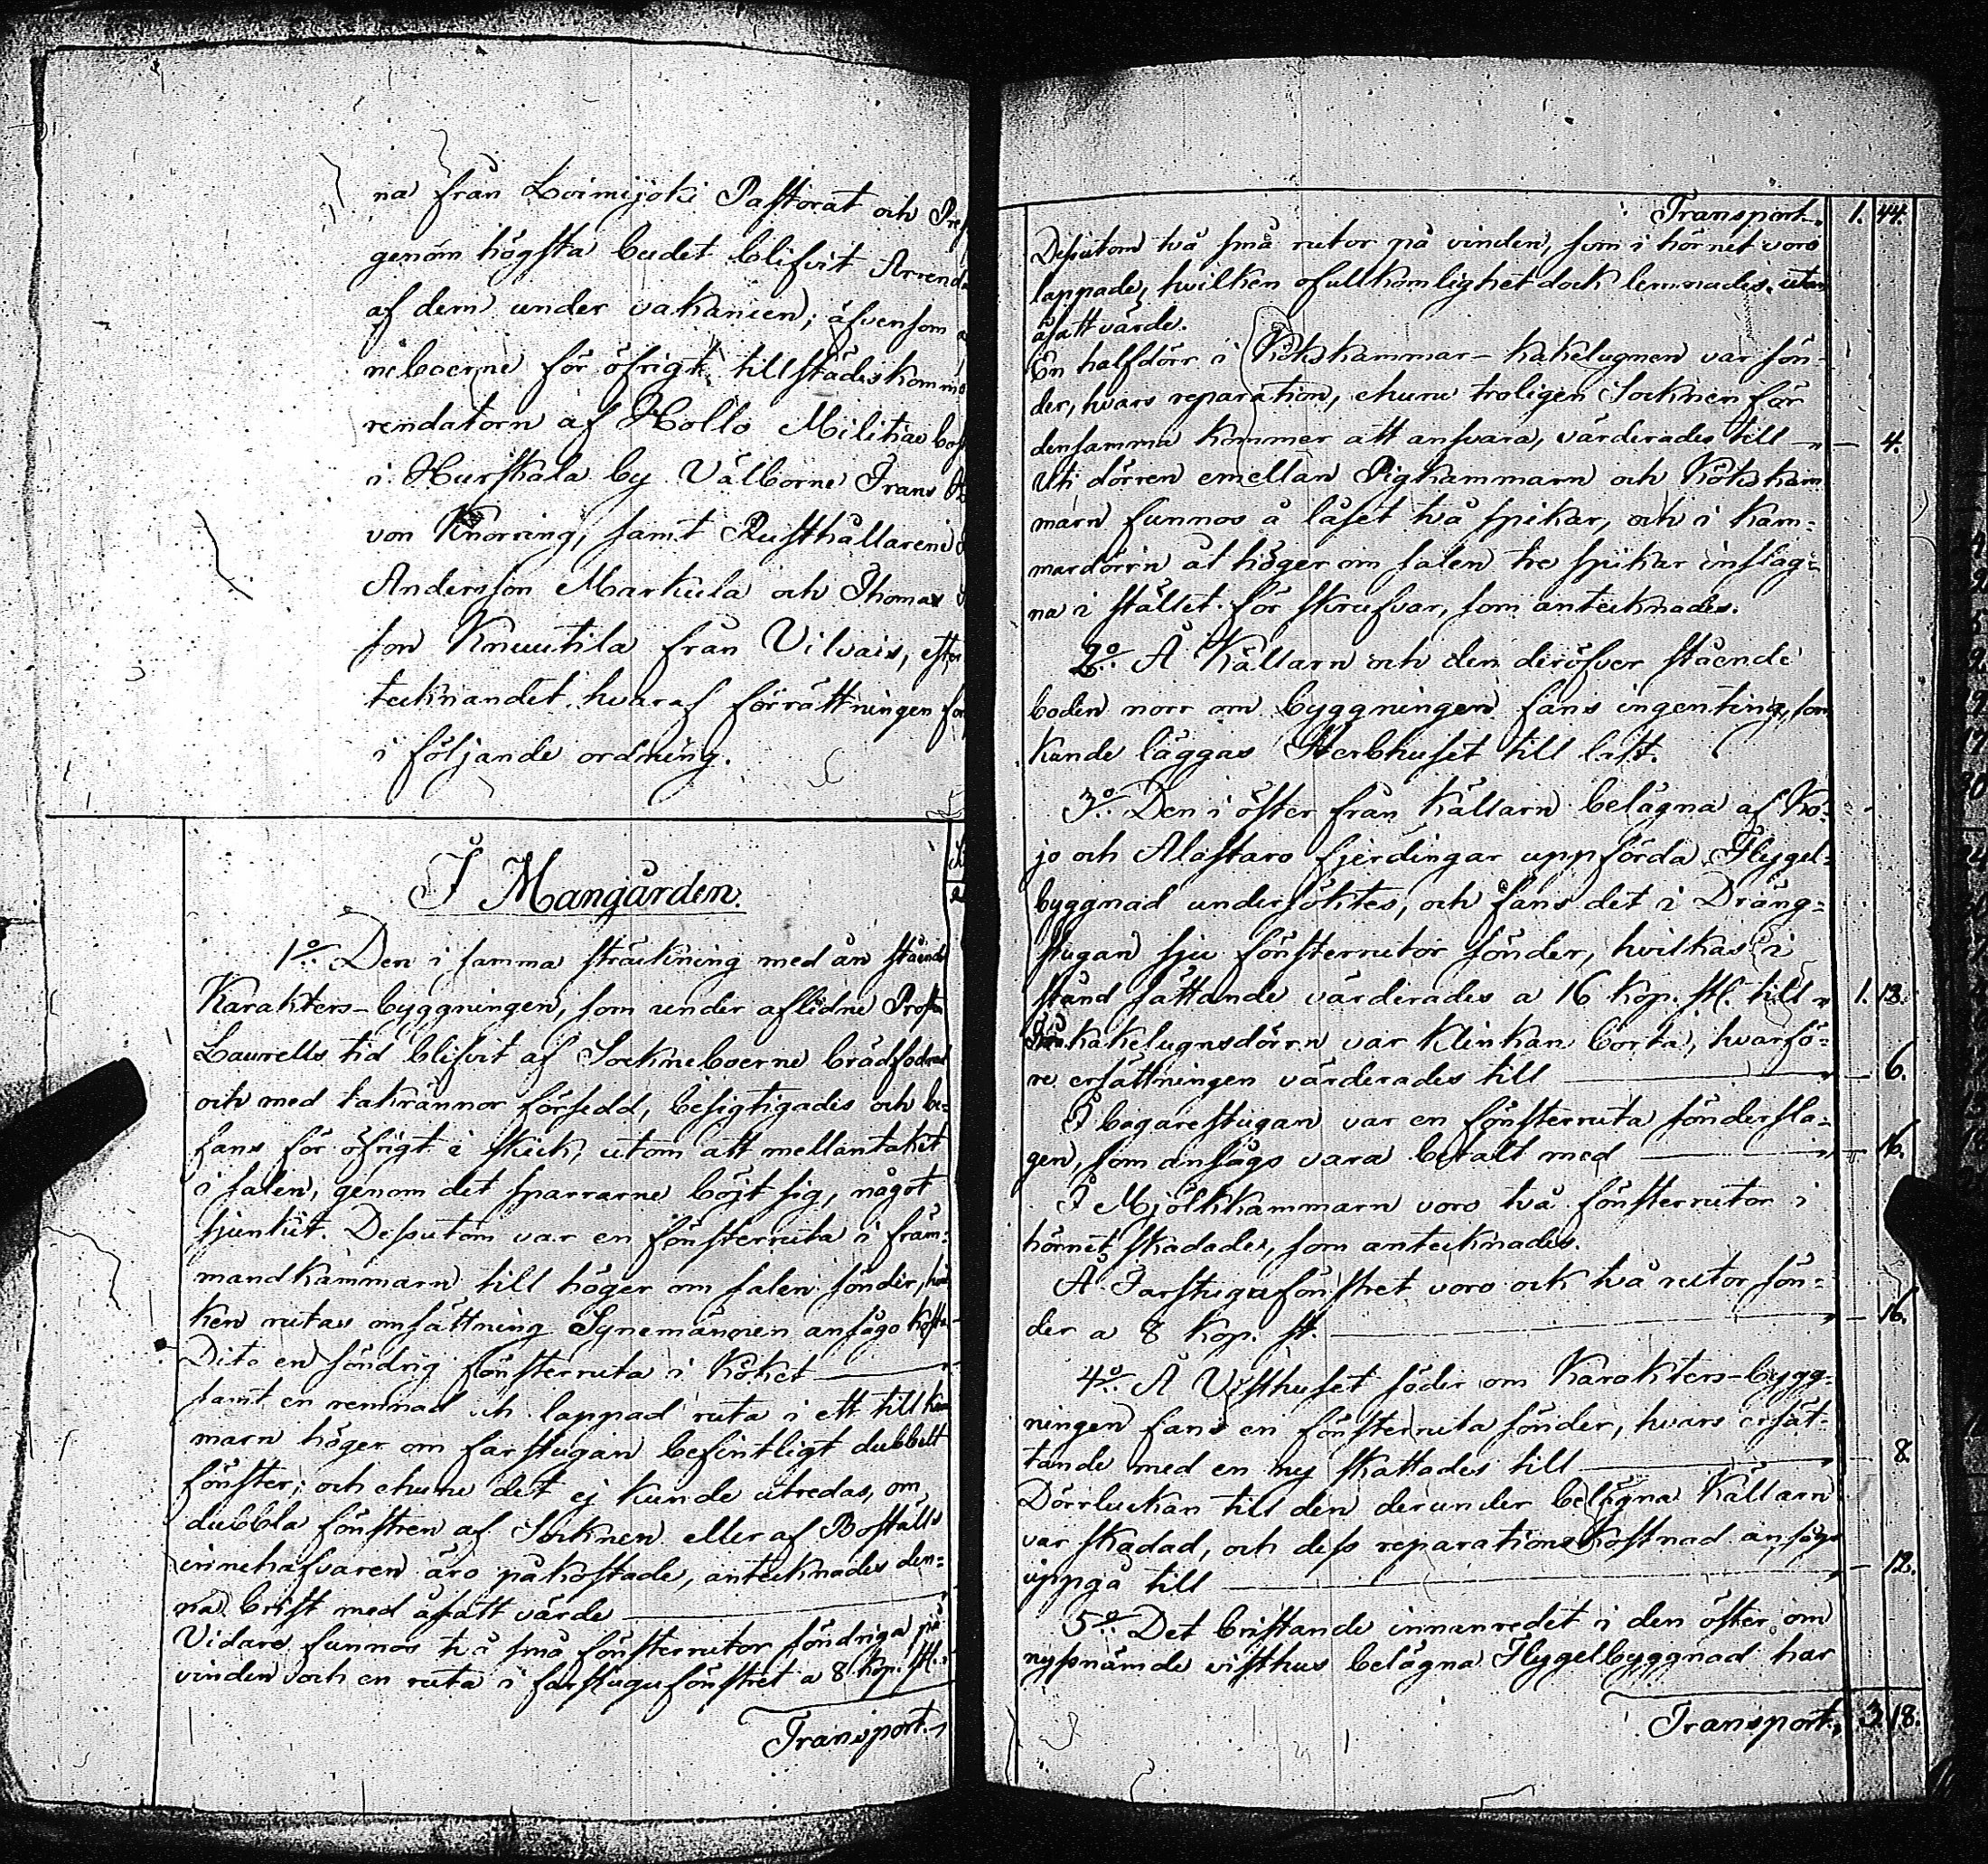 na från Loimijoki Pastorat och
genom högsta budet blifvit
af dem under vakancen; äfvensom
neboerne för öfrigt tillstädeskomm
rendatorn af Hollo Militiae
i Hurskala by Välborne Frans
von Knorring, samt Rusthållarene
Andersson Markula och Thomas
son Knuutila från Vilvais, efter
tecknandet hvaraf förrättningen
i följande ordning.
I Mangården.
1o. Den i samma sträckning med ån stående
Karakters-byggningen, som under aflidne
Laurells tid blifvit af Sockneboerne brädfodrad
och med takrännor försedd, besigtigades och be-
fans för öfrigt i skick, utom att mellantaket
i salen, genom det sparrarne böjt sig, något
sjunkit. Dessutom var en fönsterruta i främ-
mandkammarn till höger om salen sönder,
ken rutas insättning Synemännen ansågo kosta
Dito en söndrig fönsterruta i Köket
samt en remnad och lappad ruta i ett till kam
marn höger om farstugan befintligt dubbelt
fönster; och ehuru det ej kunde utredas, om
dubbla fönstren af Socknen eller af Boställs
innehafvaren äro påkostade, antecknades den-
na brist med åsatt värde
Vidare funnos två små fönsterrutor söndriga på
vinden och en ruta i farstugufönstret a 8 kop. st.
Transport.
Transport 1. 44.
Dessutom två små rutor på vinden, som i hörnet voro
lappade, hvilken ofullkomlighet dock lemnades utan
åsatt värde.
En halfdörr i Kökskammar-kakelugnen var sön-
der, hvars reparation, ehuru troligen Socknen för
densamma kommer att ansvara, värderades till — 4.
Uti dörren emellan Pigkammarn och Kökskam
marn funnos å låset två spikar, och i kam-
mardörrn åt höger om salen tre spikar inslag-
na i stället för skrufvar, som antecknades.
2o. Å Källarn och den deröfver stående
boden norr om byggningen fans ingenting, som
kunde läggas Sterbhuset till last.
3o. Den i öster från källarn belägna af Ko-
jo och Alastaro fjerdingar uppförda Flygel-
byggnad undersöktes, och fans det i Dräng-
stugan sju fönsterrutor sönder, hvilkas i
stånd sättande värderades a 16 kop. st. till 1. 12.
kakelugnsdörrn var klinkan borta, hvarfö-
re ersättningen värderades till — 6.
I bagarestugan var en fönsterruta sönderslа-
gen, som ansågs vara betalt med — 16.
I Mjölkkammarn voro två fönsterrutor i
hörnet skadade, som antecknades.
Å Farstugufönstret voro ock två rutor sön-
der a 8 kop. st. — 16.
4o. Å Visthuset söder om Karakters-bygg-
ningen fans en fönsterruta sönder, hvars ersät-
tande med en ny skattades till — 8.
Dörrluckan till den derunder belägna källarn
var skadad, och dess reparations kostnad ansågs
uppgå till — 12.
5o. Det bristande innanredet i den öster om
nyssnämde visthus belägna Flygelbyggnad har
Transport. 3. 18.